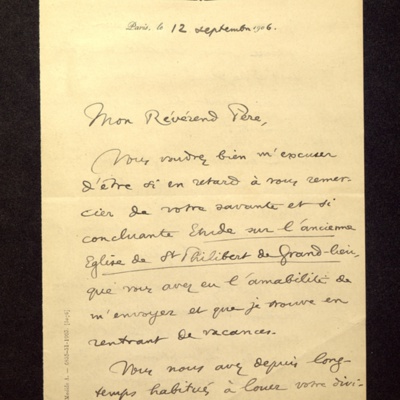 Paris, le 12 septembre 1906.
Mon Révérend Père,
Vous voudrez bien m'excuser
d'être si en retard à vous remer-
cier de votre savante et si
concluante Etude sur l'ancienne
Eglise de St Philibert de Grand-lieu,
que vous avez eu l'amabilité de
m'envoyer et que je trouve en
rentrant de vacances.
Vous nous avez depuis long-
temps habitués à louer votre divi-